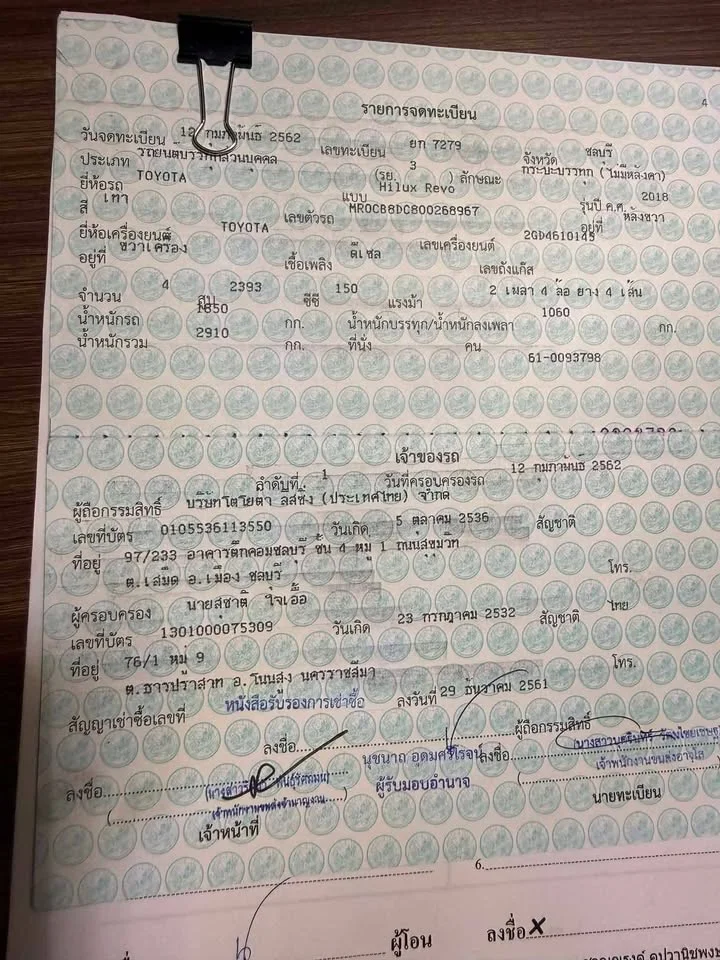 4
รายการจดทะเบียน
วันจดทะเบียน 12 กุมภาพันธ์ 2562 เลขทะเบียน ยก 7279 จังหวัด ชลบุรี
ประเภท รถยนต์บรรทุกส่วนบุคคล (รย. 3 ) ลักษณะ กระบะบรรทุก (ไม่มีหลังคา)
ยี่ห้อรถ TOYOTA แบบ Hilux Revo รุ่นปี ค.ศ. 2018
สี เทา เลขตัวรถ MR0CB8DC800268967 อยู่ที่ หลังขวา
ยี่ห้อเครื่องยนต์ TOYOTA เลขเครื่องยนต์ 2GD4610145
อยู่ที่ ขวาเครื่อง เชื้อเพลิง ดีเซล เลขถังแก๊ส
จำนวน 4 สูบ 2393 ซีซี 150 แรงม้า 2 เพลา 4 ล้อ ยาง 4 เส้น
น้ำหนักรถ 1850 กก. น้ำหนักบรรทุก/น้ำหนักลงเพลา 1060 กก.
น้ำหนักรวม 2910 กก. ที่นั่ง คน
61-0093798
เจ้าของรถ
ลำดับที่ 1 วันที่ครอบครองรถ 12 กุมภาพันธ์ 2562
ผู้ถือกรรมสิทธิ์ บริษัทโตโยต้า ลีสซิ่ง (ประเทศไทย) จำกัด
เลขที่บัตร 0105536113550 วันเกิด 5 ตุลาคม 2536 สัญชาติ
ที่อยู่ 97/233 อาคารตึกคอมชลบุรี ชั้น 4 หมู่ 1 ถนนสุขุมวิท
ต.เสม็ด อ.เมือง ชลบุรี โทร.
ผู้ครอบครอง นายสุชาติ ใจเอื้อ
เลขที่บัตร 1301000075309 วันเกิด 23 กรกฎาคม 2532 สัญชาติ ไทย
ที่อยู่ 76/1 หมู่ 9
ต.ธารปราสาท อ.โนนสูง นครราชสีมา โทร.
สัญญาเช่าซื้อเลขที่ หนังสือรับรองการเช่าซื้อ ลงวันที่ 29 ธันวาคม 2561
ลงชื่อ ผู้ถือกรรมสิทธิ์
นุชนาถ
ลงชื่อ ผู้รับมอบอำนาจ ลงชื่อ
เจ้าพนักงานขนส่งชำนาญงาน เจ้าพนักงานขนส่งอาวุโส
เจ้าหน้าที่ นายทะเบียน
6.
ผู้โอน ลงชื่อ X